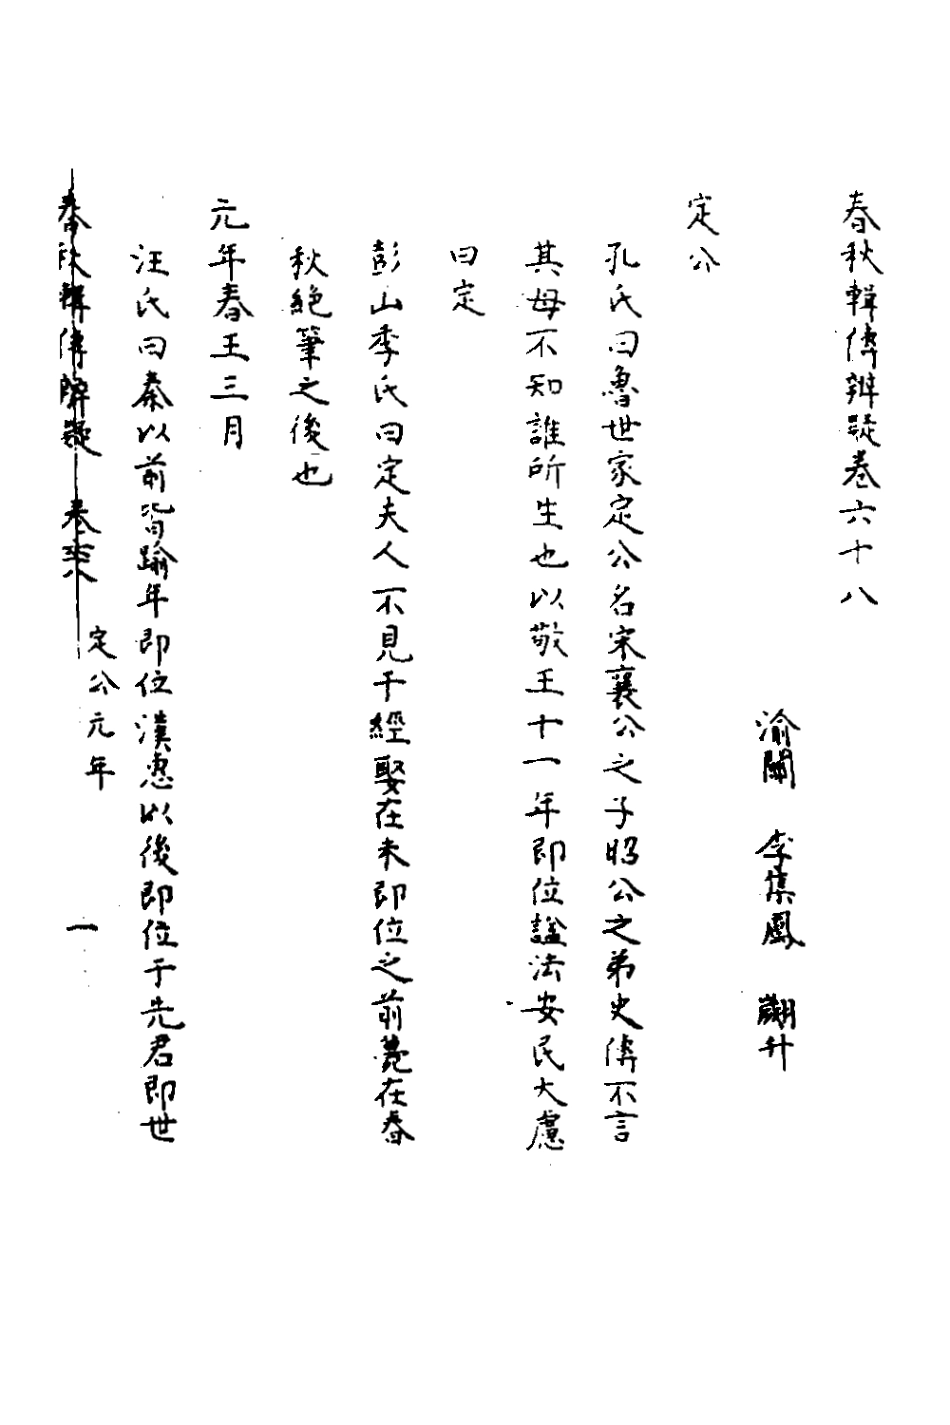 春秋輯傳辨疑卷六十八
渝關 李集鳳 翽升
定公
孔氏曰魯世家定公名宋襄公之子昭公之弟史傳不言
其母不知誰所生也以敬王十一年即位謚法安民大慮
曰定
彭山季氏曰定夫人不見于經娶在未即位之前薨在春
秋絕筆之後也
元年春王三月
汪氏曰秦以前皆踰年即位漢惠以後即位于先君即世
春秋輯傳辨疑 卷六十八 定公元年 一